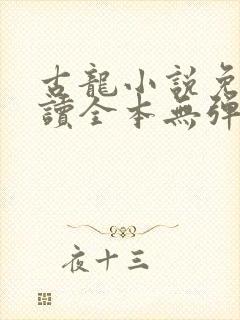 古龍小說免
讀全本無彈
夜十三